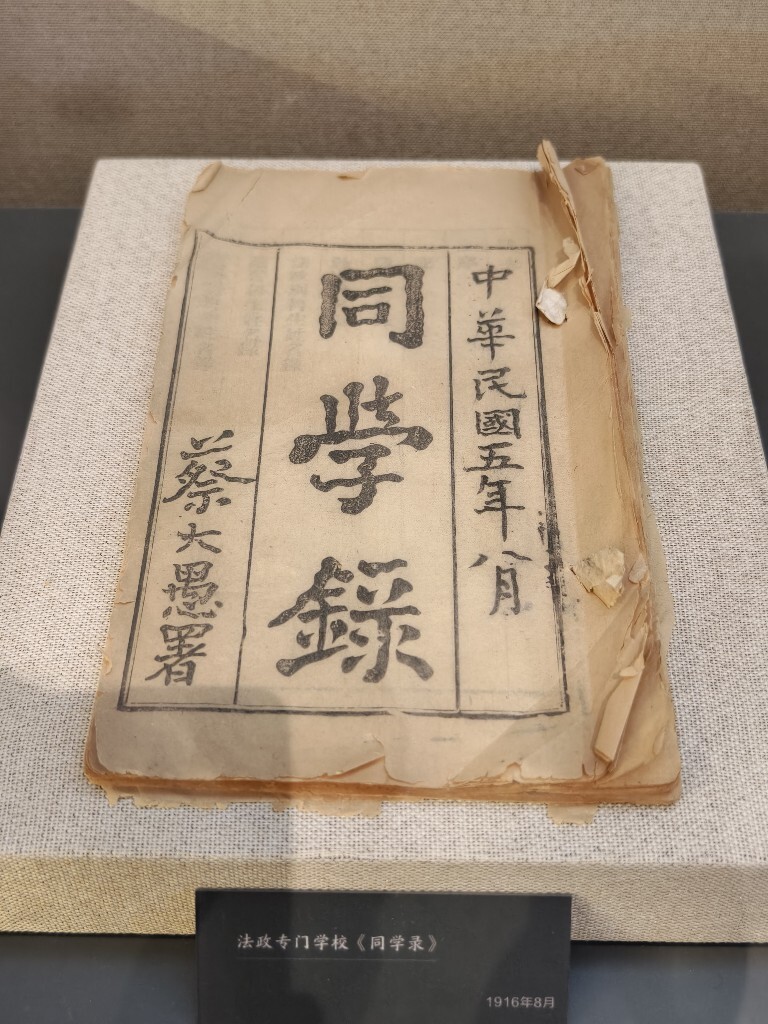 中華民國五年八月
同學錄
蔡大愚署
法政专门学校《同学录》
1916年8月